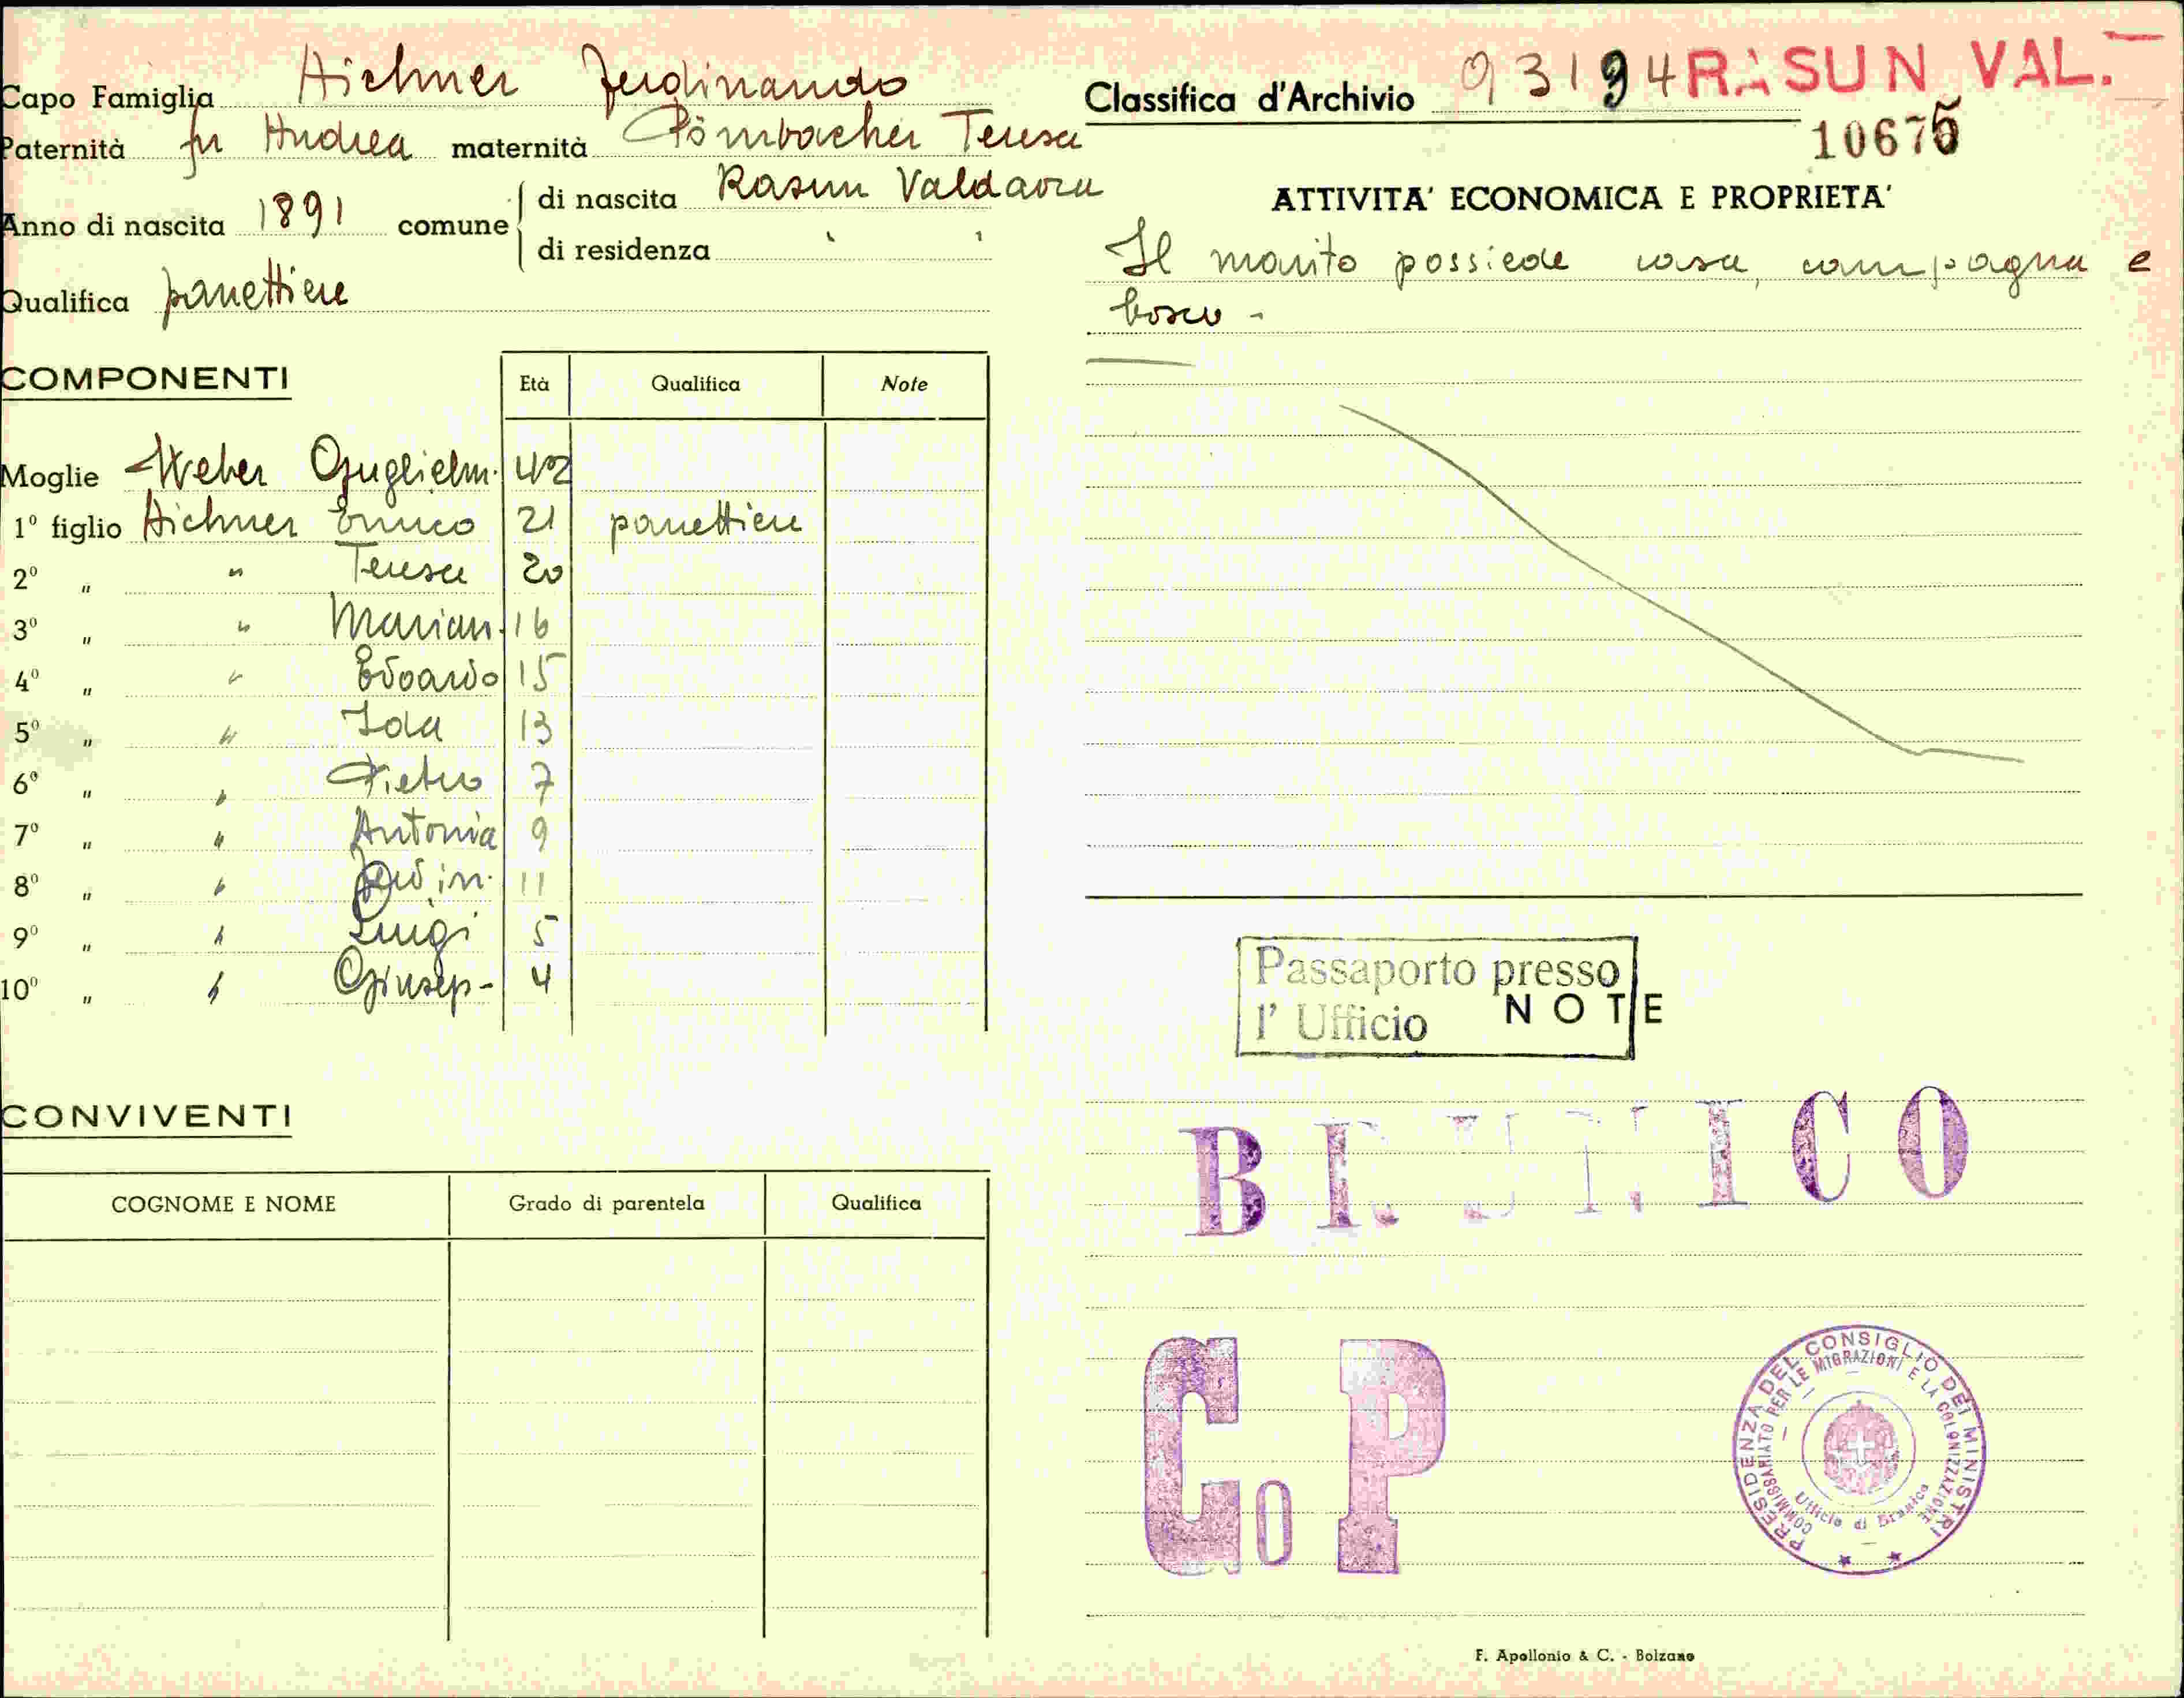 Capo Famiglia Aichner Ferdinando
Paternità fu Andrea maternità Pömbacher Teresa
Anno di nascita 1891 comune di nascita Rasun Valdaora
di residenza " "
Qualifica panettiere
COMPONENTI Età Qualifica Note
Moglie Weber Guglielm. 42
1º figlio Aichner Enrico 21 panettiere
2º " " Teresa 20
3º " " Marian. 16
4º " " Edoardo 15
5º " " Ida 13
6º " " Pietro 7
7º " " Antonia 9
8º " " Ferdin. 11
9º " " Luigi 5
10º " " Giusep- 4
CONVIVENTI
COGNOME E NOME Grado di parentela Qualifica
Classifica d'Archivio 93194 RASUN VAL.
10675
ATTIVITA' ECONOMICA E PROPRIETA'
Il marito possiede casa, campagna e
bosco -
Passaporto presso
l' Ufficio
NOTE
BRUNICO
Co P
PRESIDENZA DEL CONSIGLIO DEI MINISTRI
COMMISSARIATO PER LE MIGRAZIONI E LA COLONIZZAZIONE
Ufficio di Brunico
F. Apollonio & C. - Bolzano